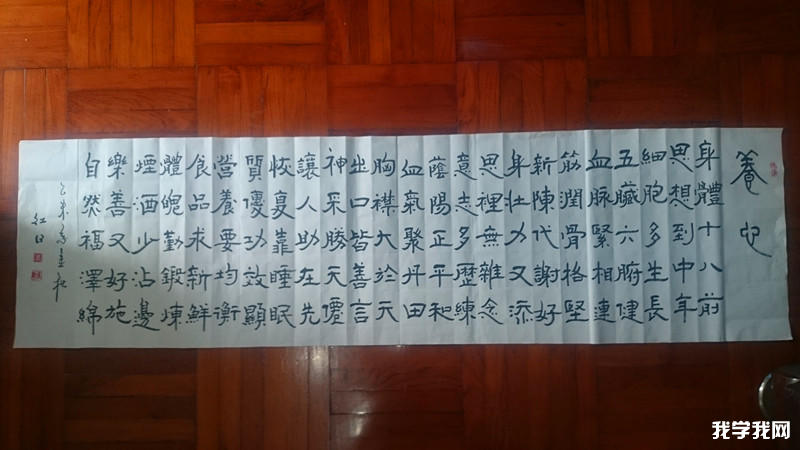 養心
身體十八前
思想到中年
細胞多生長
五臟六腑健
血脉緊相連
筋潤骨格堅
新陳代謝好
身壮力又添
思裡無雜念
意志多歷練
蔭陽正平和
血氣聚丹田
胸襟大於天
出口皆善言
神采勝天僊
讓人助在先
恢复靠睡眠
質優功效顯
營養要均衡
食品求新鮮
體魄勤鍛煉
煙酒少沾邊
樂善又好施
自然福澤綿
红日
我学我网